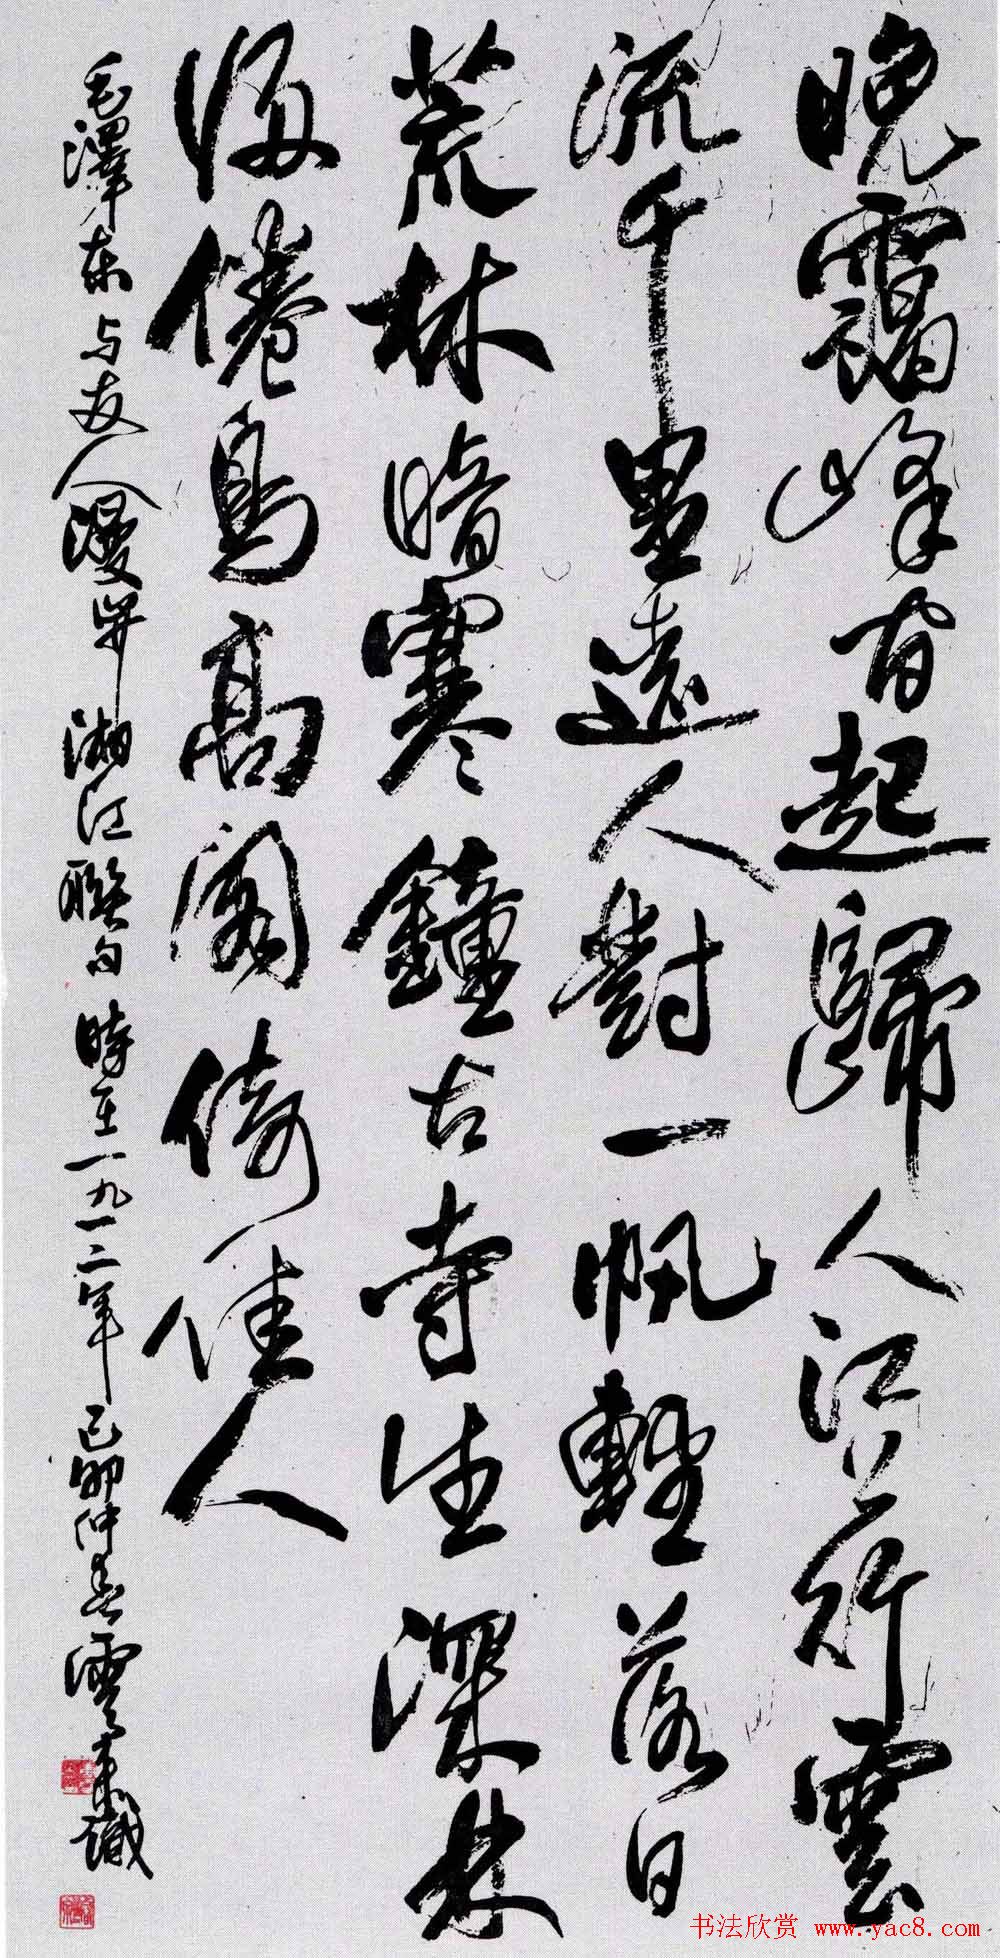 晚靄峰間起歸人江上行雲
流千里遠人對一帆輕落日
荒林暗寒鐘古寺生深林
歸倦鳥高閣倚佳人
毛澤东与友人漫步湘江聯句 時在一九一二年己卯仲春雲来識
书法欣赏 www.yac8.com